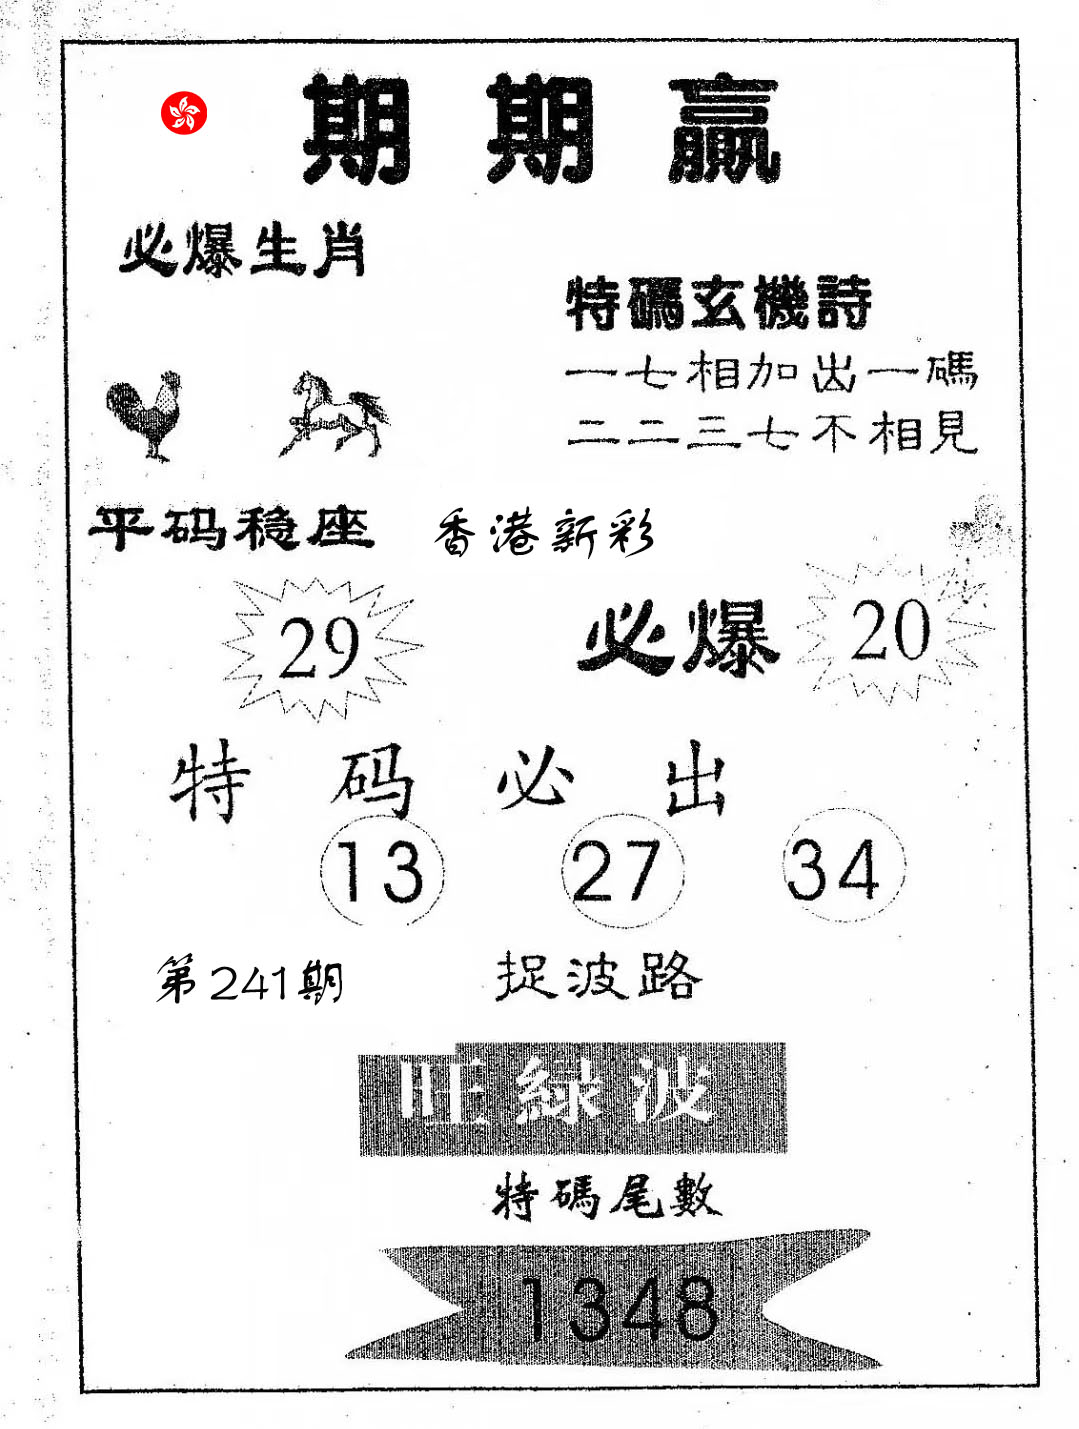 期期贏
必爆生肖
特碼玄機詩
一七相加出一碼
二二三七不相見
平码稳座
香港新彩
29
必爆 20
特码必出
13 27 34
第241期
捉波路
旺綠波
特碼尾數
1348